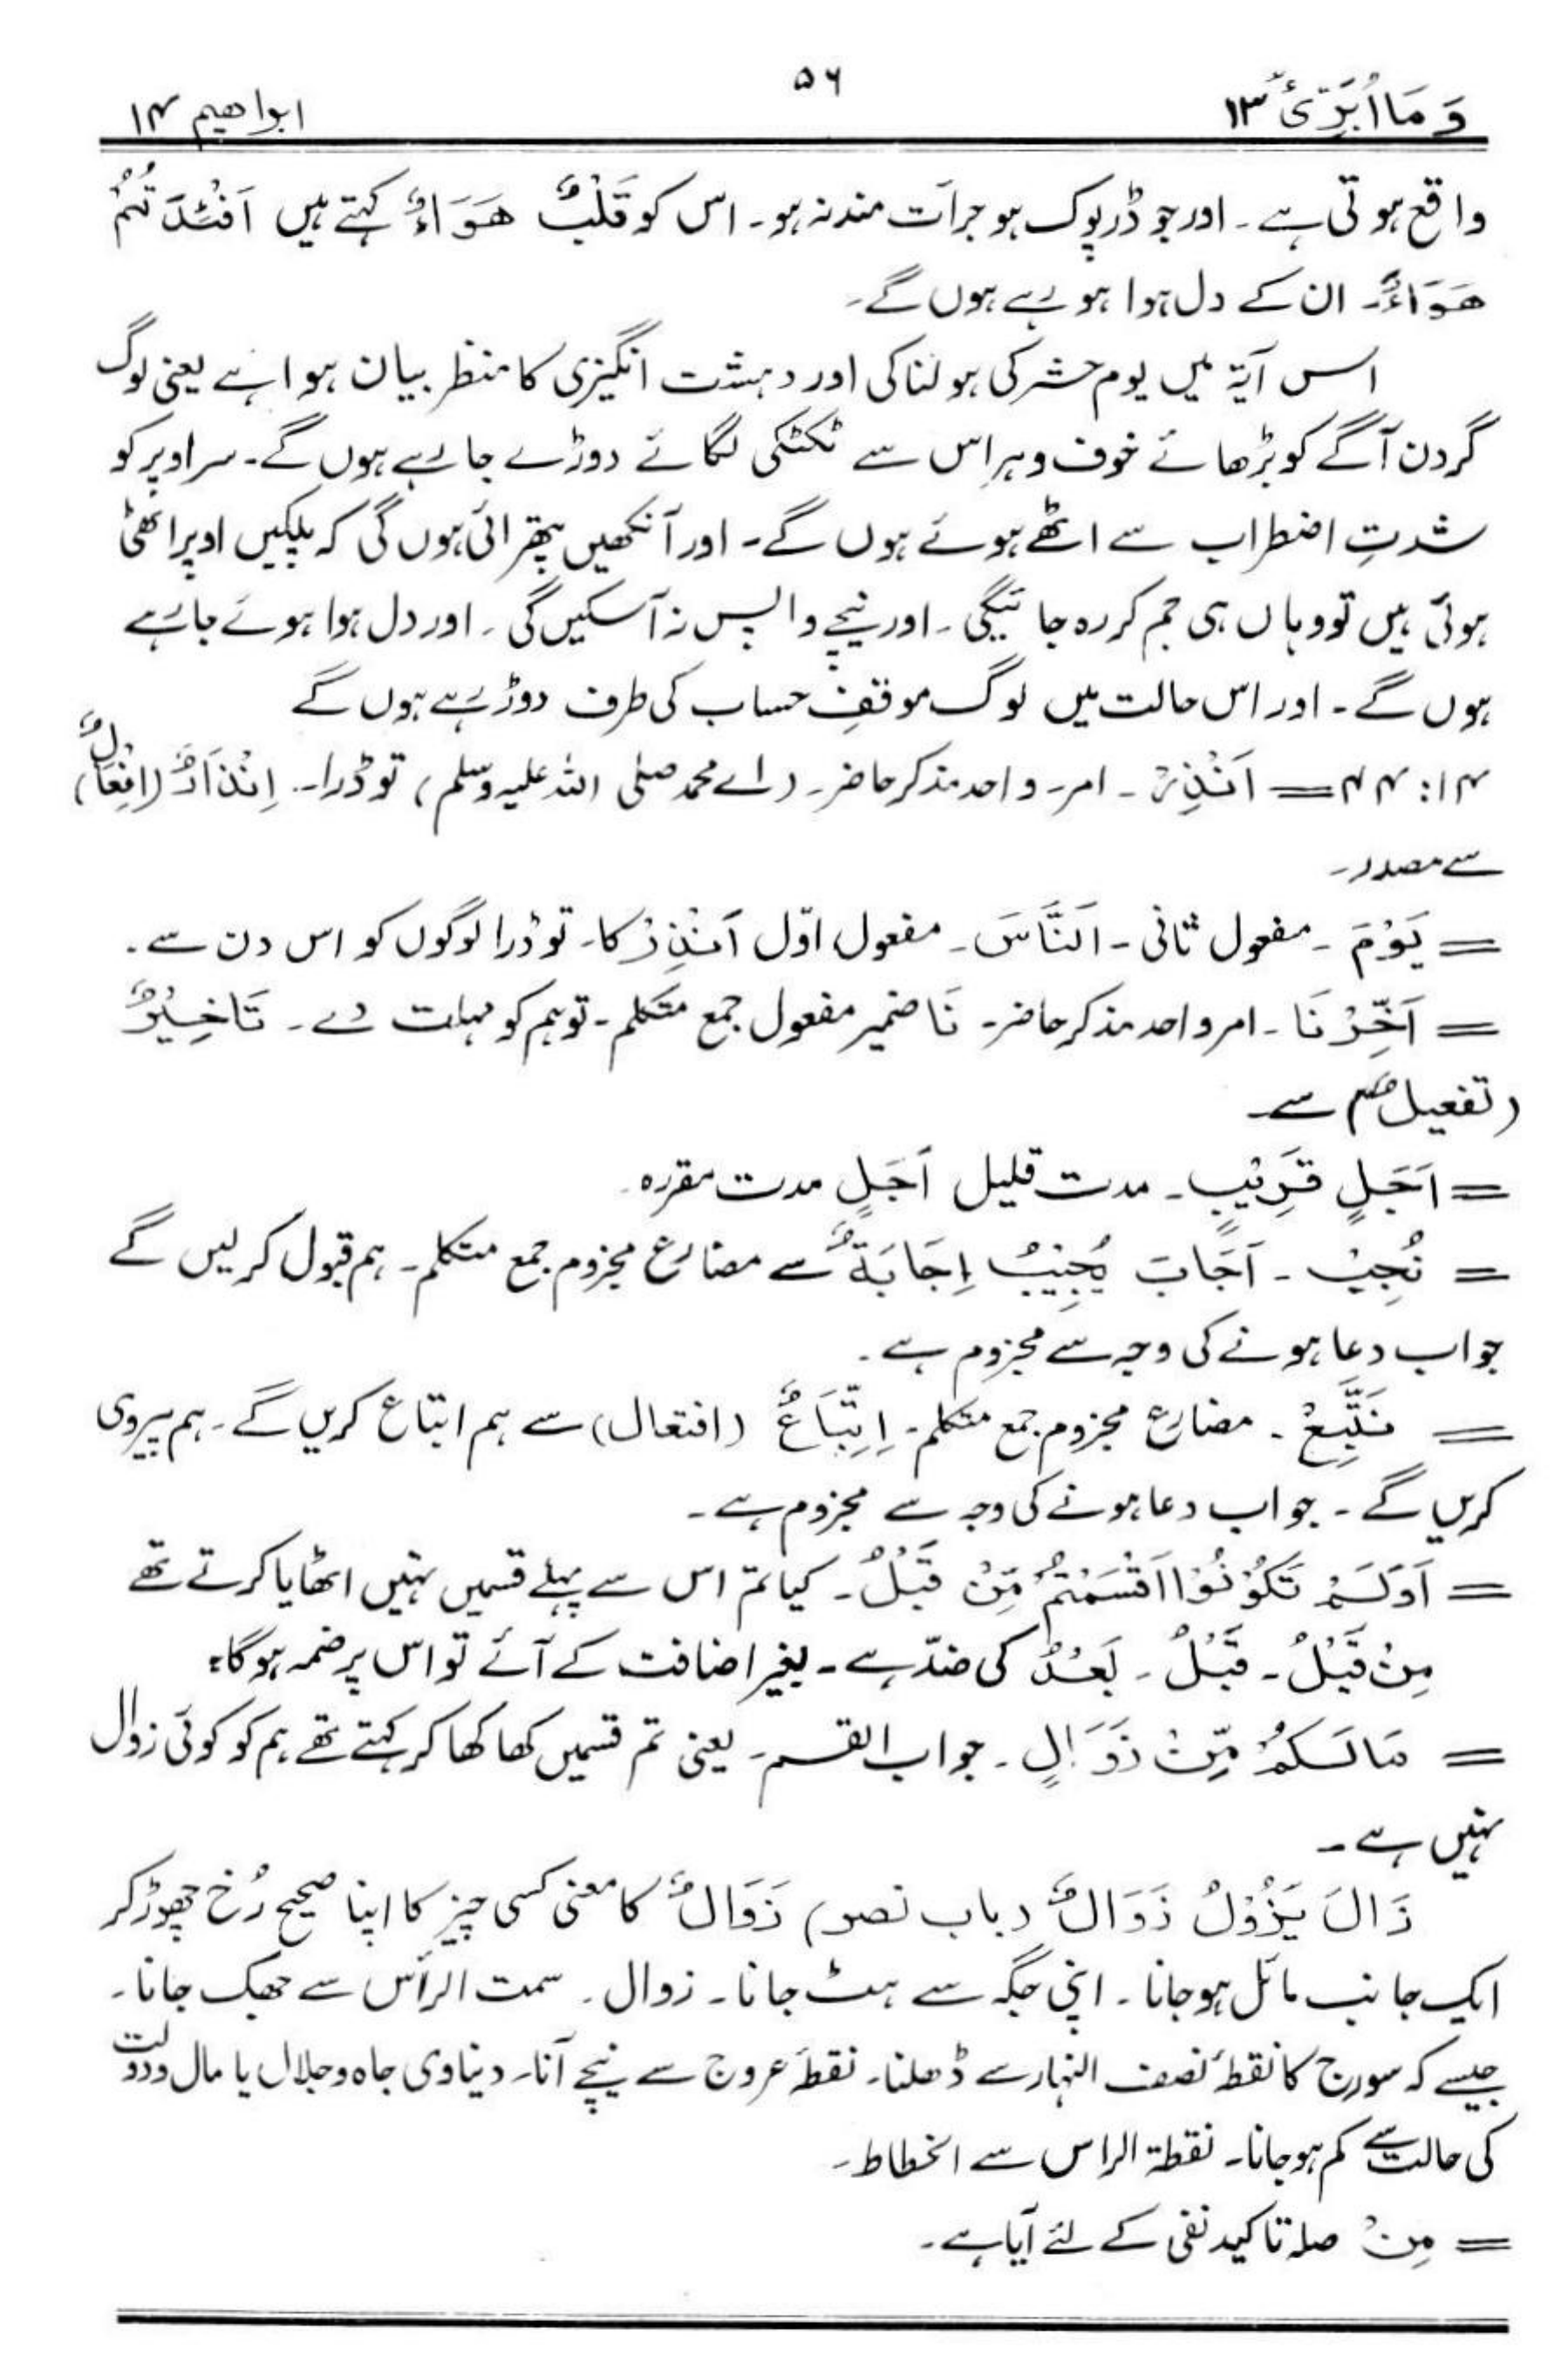 وَمَا اُبَرِّئُ ۱۳
۵۶
ابراهيم ۱۴
واقع ہوتی ہے۔ اور جو ڈرپوک ہو جرأت مند نہ ہو۔ اس کو قَلْبٌ هَوَاءٌ کہتے ہیں اَفْئِدَتُهُمْ
هَوَاءٌ۔ ان کے دل ہوا ہو رہے ہوں گے۔
اس آیۃ میں یوم حشر کی ہولناکی اور دہشت انگیزی کا منظر بیان ہوا ہے یعنی لوگ
گردن آگے کو بڑھائے خوف و ہراس سے ٹکٹکی لگائے دوڑے جا رہے ہوں گے۔ سر اوپر کو
شدتِ اضطراب سے اٹھے ہوئے ہوں گے۔ اور آنکھیں پتھرائی ہوں گی کہ پلکیں اوپر اٹھی
ہوئی ہیں تو وہاں ہی جم کر رہ جائیگی۔ اور نیچے واپس نہ آسکیں گی۔ اور دل ہوا ہوئے جا رہے
ہوں گے۔ اور اس حالت میں لوگ موقفِ حساب کی طرف دوڑ رہے ہوں گے
۱۴: ۴۴ = اَنْذِرْ۔ امر۔ واحد مذکر حاضر۔ (اے محمد صلی اللہ علیہ وسلم) تو ڈرا۔ اِنْذَارٌ (اِفْعَالٌ)
سے مصدر۔
= يَوْمَ۔ مفعول ثانی۔ اَلنَّاسَ۔ مفعول اوّل اَنْذِرْ کا۔ تو ڈرا لوگوں کو اس دن سے۔
= اَخِّرْنَا۔ امر واحد مذکر حاضر۔ نَا ضمیر مفعول جمع متکلم۔ تو ہم کو مہلت دے۔ تَاخِيْرٌ
(تفعیل) سے۔
= اَجَلٍ قَرِيْبٍ۔ مدت قلیل اَجَلٍ مدت مقررہ۔
= نُجِبْ۔ اَجَابَ يُجِيْبُ اِجَابَةٌ سے مضارع مجزوم جمع متکلم۔ ہم قبول کر لیں گے
جواب دعا ہونے کی وجہ سے مجزوم ہے۔
= نَتَّبِعْ۔ مضارع مجزوم جمع متکلم۔ اِتِّبَاعٌ (افتعال) سے ہم اتباع کریں گے۔ ہم پیروی
کریں گے۔ جواب دعا ہونے کی وجہ سے مجزوم ہے۔
= اَوَلَمْ تَكُوْنُوْا اَقْسَمْتُمْ مِّنْ قَبْلُ۔ کیا تم اس سے پہلے قسمیں نہیں اٹھایا کرتے تھے
مِنْ قَبْلُ۔ قَبْلُ۔ بَعْدُ کی ضدّ ہے۔ بغیر اضافت کے آئے تو اس پر ضمہ ہوگا۔
= مَا لَكُمْ مِّنْ زَوَالٍ۔ جواب القسم۔ یعنی تم قسمیں کھا کھا کر کہتے تھے ہم کو کوئی زوال
نہیں ہے۔
زَالَ يَزُوْلُ زَوَالٌ (باب نصر) زَوَالٌ کا معنی کسی چیز کا اپنا صحیح رُخ چھوڑ کر
ایک جانب مائل ہو جانا۔ اپنی جگہ سے ہٹ جانا۔ زوال۔ سمت الرأس سے جھک جانا۔
جیسے کہ سورج کا نقطۂ نصف النہار سے ڈھلنا۔ نقطۂ عروج سے نیچے آنا۔ دنیاوی جاہ و جلال یا مال و دولت
کی حالت سے کم ہو جانا۔ نقطۃ الراس سے انحطاط۔
= مِنْ صلہ تاکید نفی کے لئے آیا ہے۔